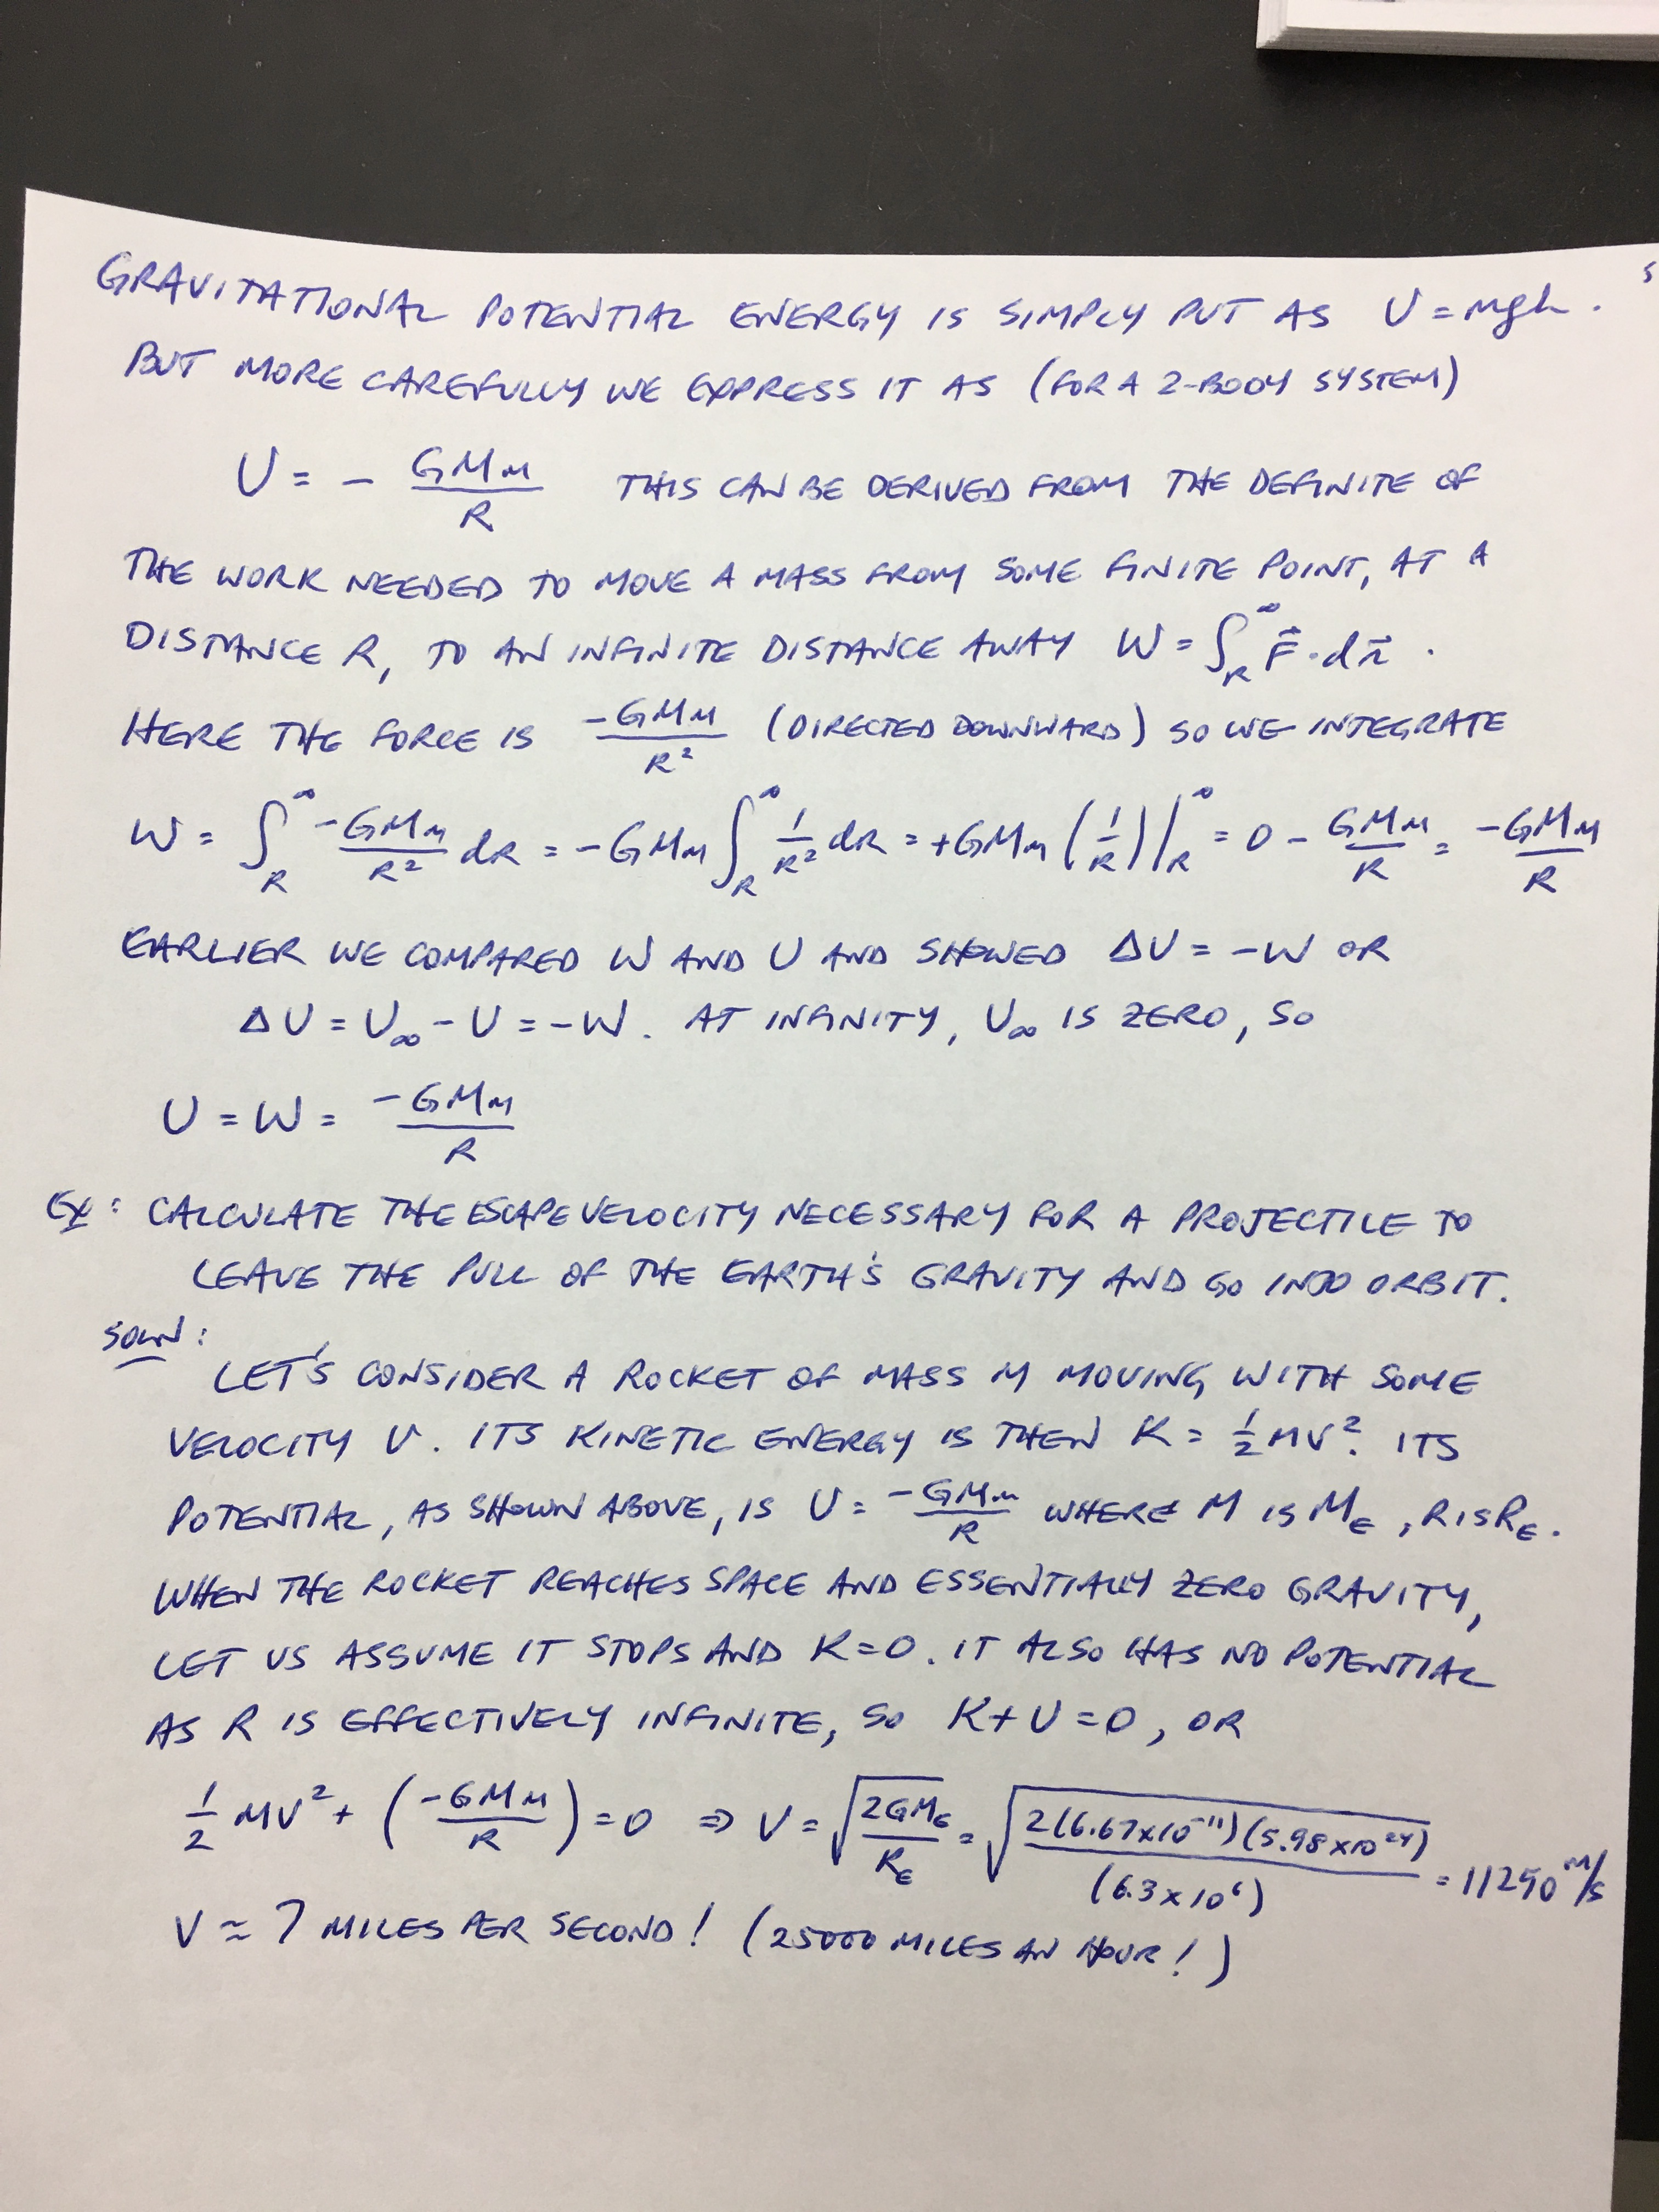 GRAVITATIONAL POTENTIAL ENERGY IS SIMPLY PUT AS U = mgh.
BUT MORE CAREFULLY WE EXPRESS IT AS (FOR A 2-BODY SYSTEM)
U = - GMm/R THIS CAN BE DERIVED FROM THE DEFINITE OF
THE WORK NEEDED TO MOVE A MASS FROM SOME FINITE POINT, AT A
DISTANCE R, TO AN INFINITE DISTANCE AWAY W = ∫_R^∞ F⃗·dr⃗.
HERE THE FORCE IS -GMm/R² (DIRECTED DOWNWARD) SO WE INTEGRATE
W = ∫_R^∞ -GMm/R² dR = -GMm ∫_R^∞ 1/R² dR = +GMm (1/R)|_R^∞ = 0 - GMm/R = -GMm/R
EARLIER WE COMPARED W AND U AND SHOWED ΔU = -W OR
ΔU = U∞ - U = -W. AT INFINITY, U∞ IS ZERO, SO
U = W = -GMm/R
EX: CALCULATE THE ESCAPE VELOCITY NECESSARY FOR A PROJECTILE TO
LEAVE THE PULL OF THE EARTH'S GRAVITY AND GO INTO ORBIT.
SOLN:
LET'S CONSIDER A ROCKET OF MASS M MOVING WITH SOME
VELOCITY V. ITS KINETIC ENERGY IS THEN K = ½MV². ITS
POTENTIAL, AS SHOWN ABOVE, IS U = -GMm/R WHERE M IS M_E, R IS R_E.
WHEN THE ROCKET REACHES SPACE AND ESSENTIALLY ZERO GRAVITY,
LET US ASSUME IT STOPS AND K=0. IT ALSO HAS NO POTENTIAL
AS R IS EFFECTIVELY INFINITE, SO K+U=0, OR
½MV² + (-GMm/R) = 0 ⇒ V = √(2GM_E/R_E) = √(2(6.67x10⁻¹¹)(5.98x10²⁴)/(6.3x10⁶)) = 11250 m/s
V ≈ 7 MILES PER SECOND! (25000 MILES AN HOUR!)